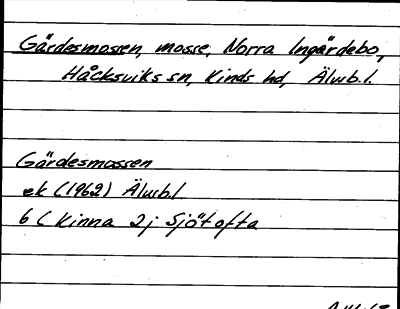 Gärdesmossen, mosse, Norra Ingärdebo,
Håcksviks sn, Kinds hd, Älvsb.l.
Gärdesmossen
ek (1962) Älvsb.l
6 C Kinna 2j Sjötofta